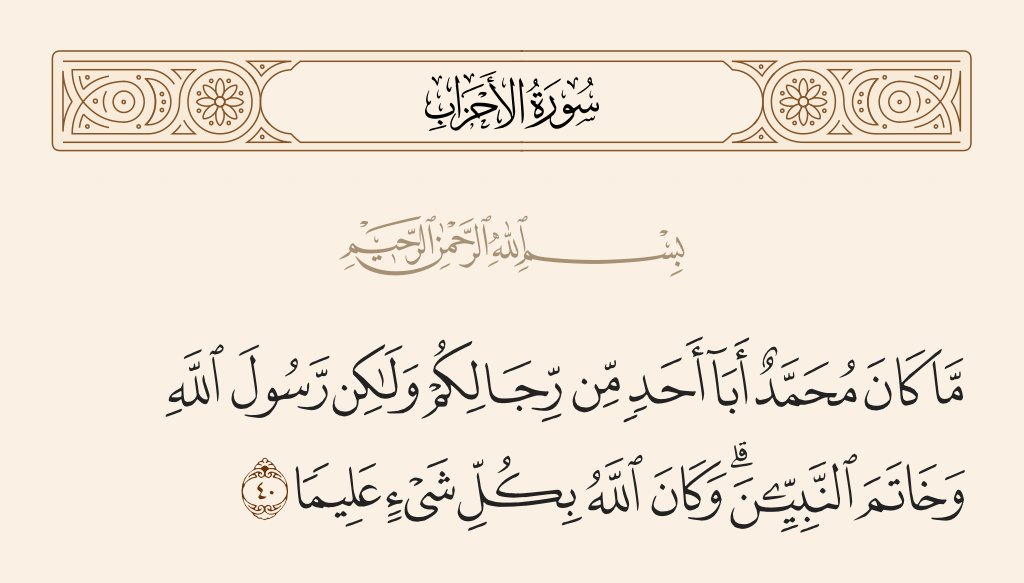 سُورَةُ الأَحْزَابِ
بِسْمِ ٱللَّهِ ٱلرَّحْمَٰنِ ٱلرَّحِيمِ
مَّا كَانَ مُحَمَّدٌ أَبَآ أَحَدٍ مِّن رِّجَالِكُمْ وَلَٰكِن رَّسُولَ ٱللَّهِ
وَخَاتَمَ ٱلنَّبِيِّـۧنَ ۗ وَكَانَ ٱللَّهُ بِكُلِّ شَىْءٍ عَلِيمًا ٤٠